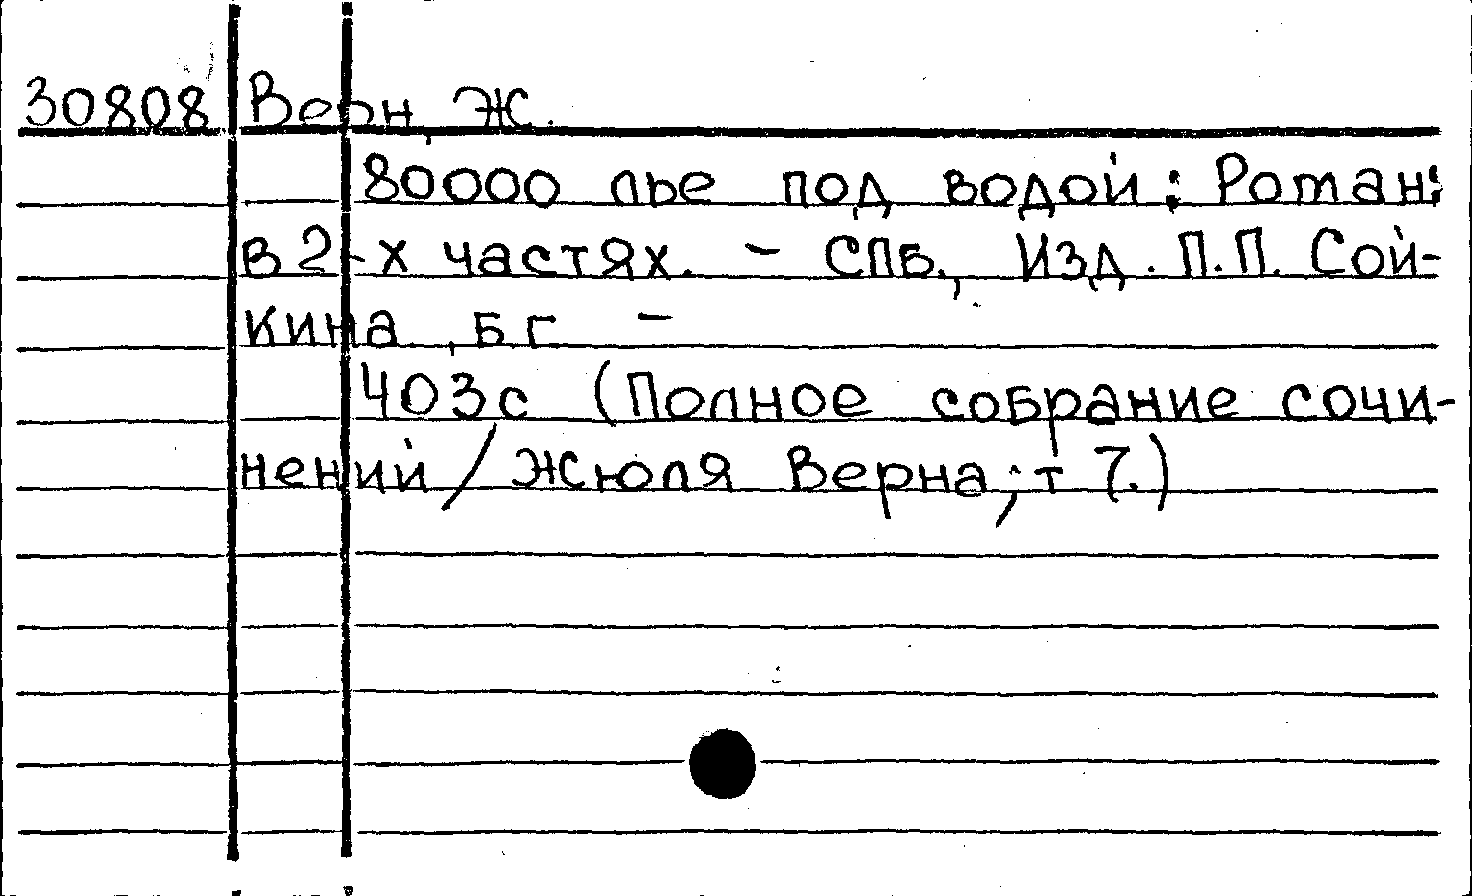 30808 Верн, Ж.
80000 лье под водой : Роман:
в 2-х частях. - СПб., Изд. П.П. Сой-
кина, б г -
403с (Полное собрание сочи-
нений / Жюля Верна; т 7.)